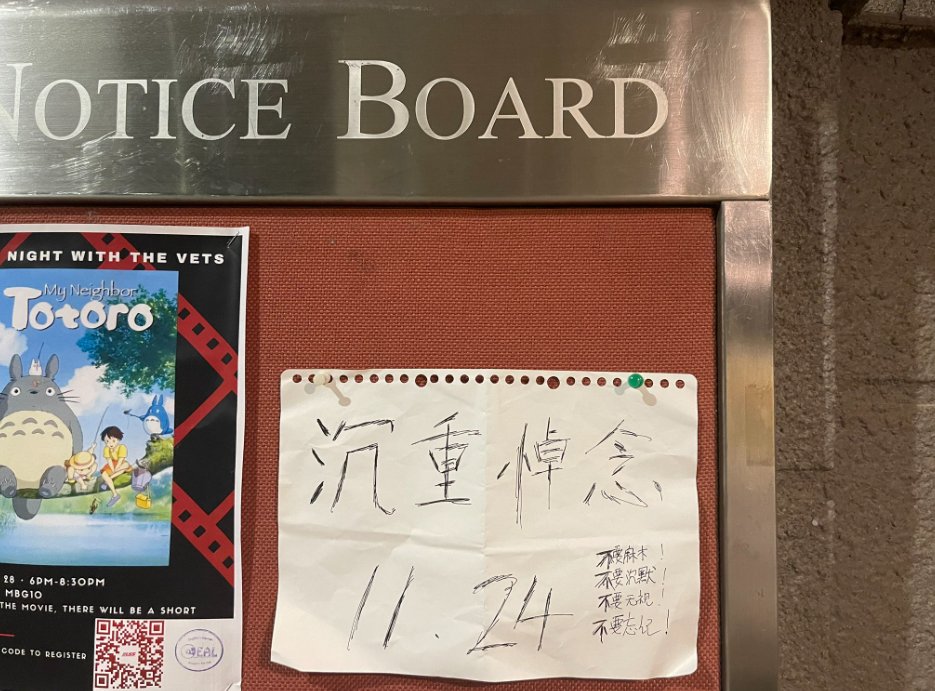 NOTICE BOARD
NIGHT WITH THE VETS
My Neighbor
TOTORO
28 · 6PM-8:30PM
MBG10
THE MOVIE, THERE WILL BE A SHORT
CODE TO REGISTER
沉重悼念
11.24
不要麻木！
不要沉默！
不要无视！
不要忘记！